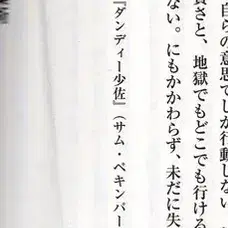 自らの意思でしか行動しない
貪さと、地獄でもどこでも行ける
ない。にもかかわらず、未だに失
『ダンディー少佐』（サム・ペキンパー